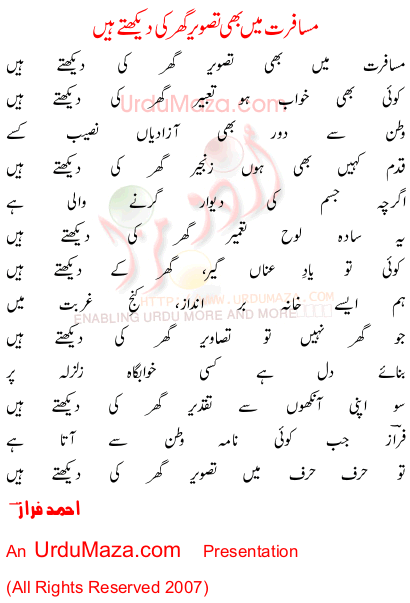 مسافرت میں بھی تصویر گھر کی دیکھتے ہیں
مسافرت میں بھی تصویر گھر کی دیکھتے ہیں
کوئی بھی خواب ہو تعبیر گھر کی دیکھتے ہیں
وطن سے دور بھی آزادیاں نصیب کسے
قدم کہیں بھی ہوں زنجیر گھر کی دیکھتے ہیں
اگرچہ جسم کی دیوار گرنے والی ہے
یہ سادہ لوح تعمیر گھر کی دیکھتے ہیں
کوئی تو یادِ عناں گیر، گھر کے دیکھتے ہیں
ہم ایسے خانہ بر انداز، کنج غربت میں
جو گھر نہیں تو تصاویر گھر کی دیکھتے ہیں
بنائے دل ہے کسی خوابگاہ زلزلہ پر
سو اپنی آنکھوں سے تقدیر گھر کی دیکھتے ہیں
فراز جب کوئی نامہ وطن سے آتا ہے
تو حرف حرف میں تصویر گھر کی دیکھتے ہیں
احمد فراز
An UrduMaza.com Presentation
(All Rights Reserved 2007)
UrduMaza.com
اُردو مزا
HTTP://WWW.URDUMAZA.COM
ENABLING URDU MORE AND MORE